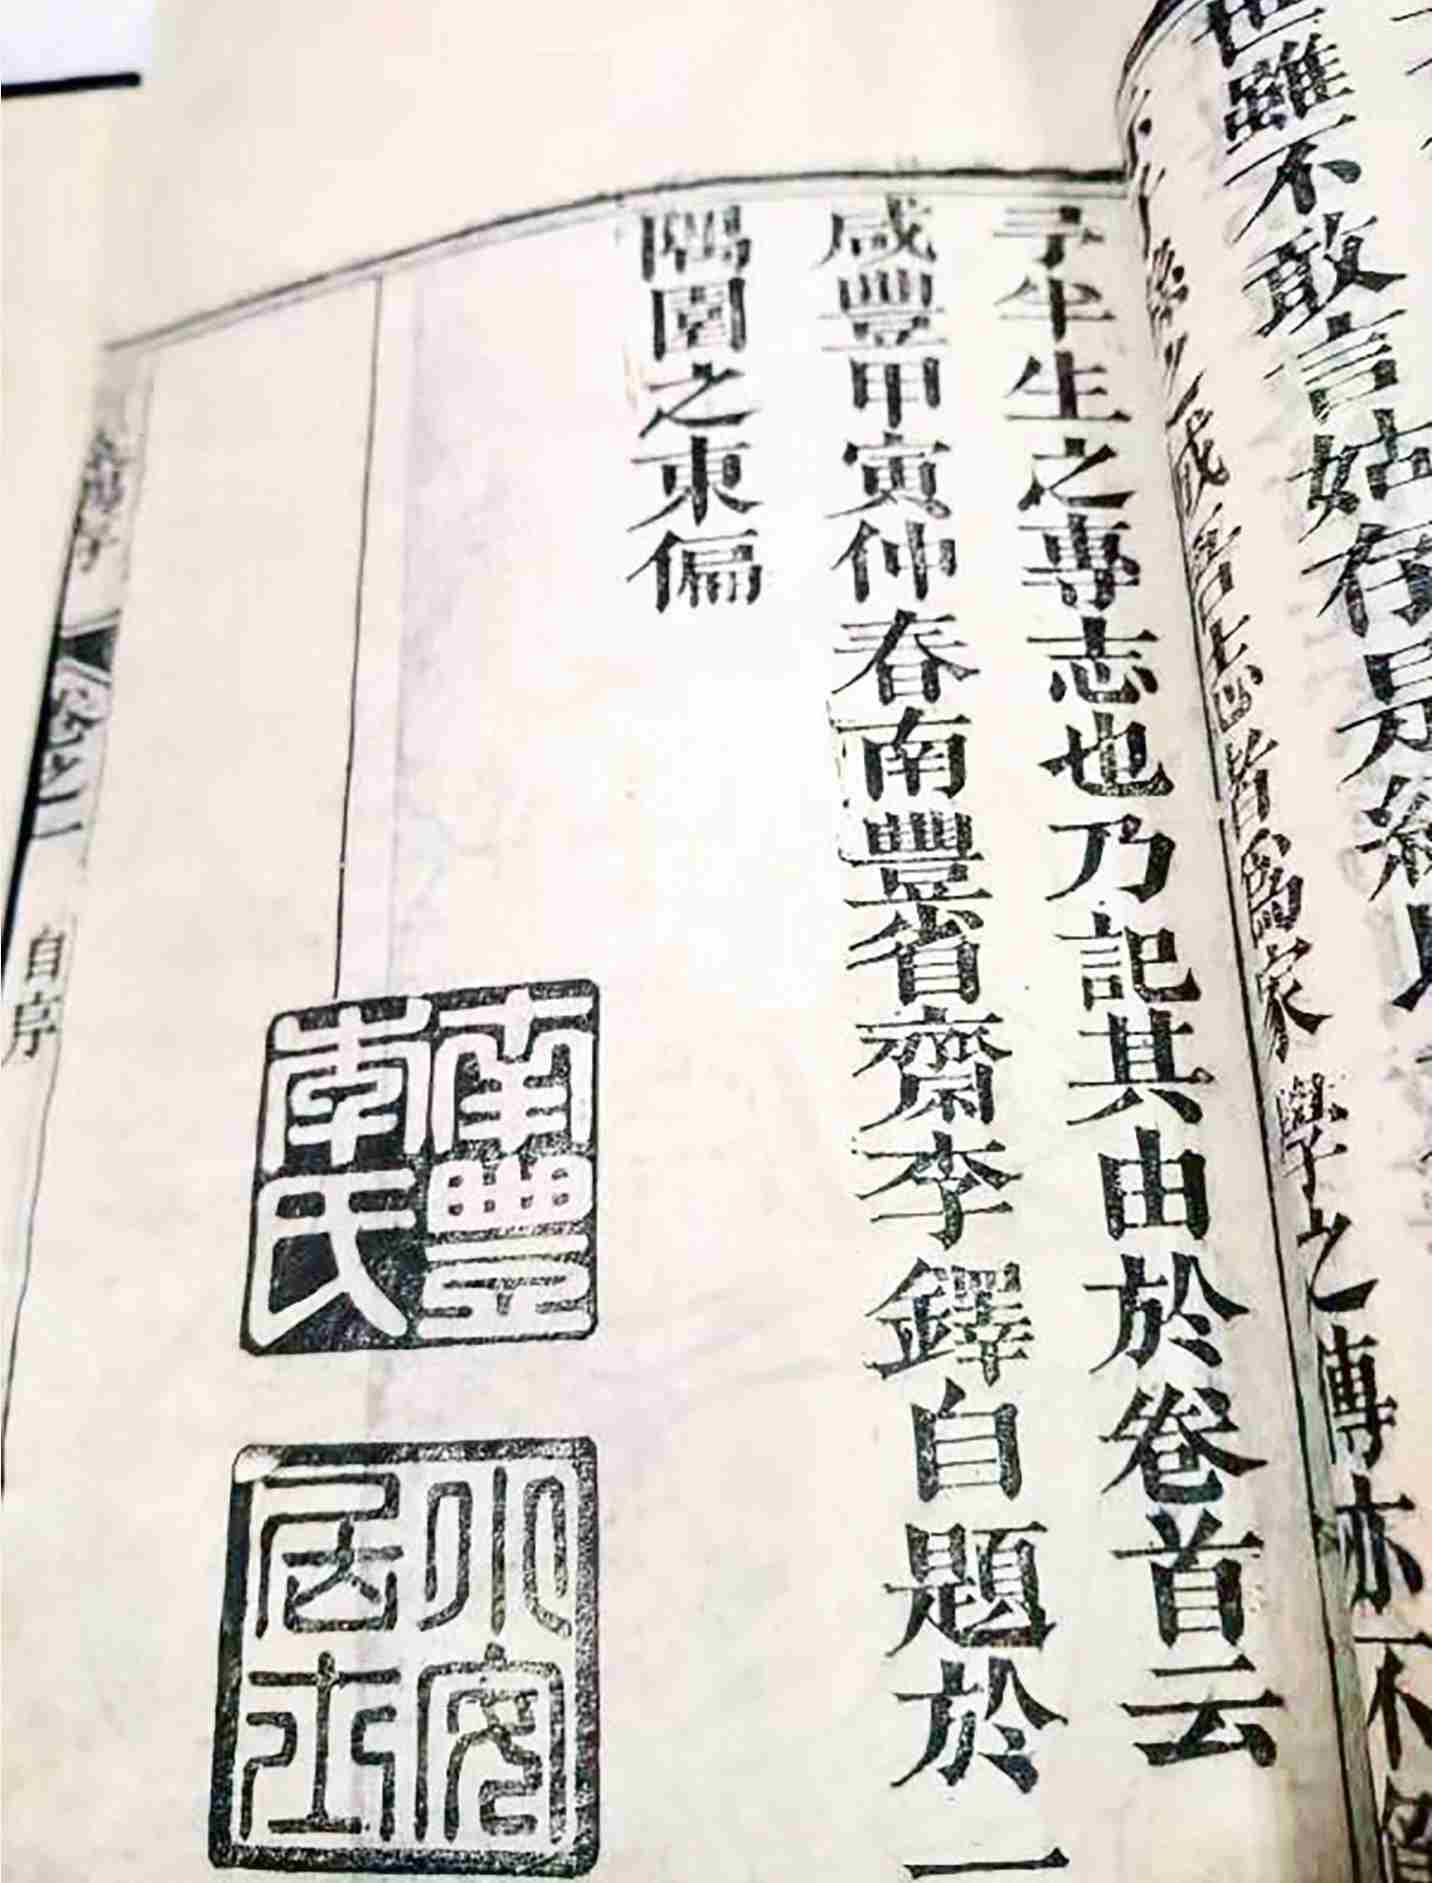 世雖不敢言姑存是編
皆為家學之傳亦不
予半生之專志也乃記其由於卷首云
咸豐甲寅仲春南豐省齋李鐸自題於一
隅園之東偏
南豐李氏
小居士
卷之一 自序